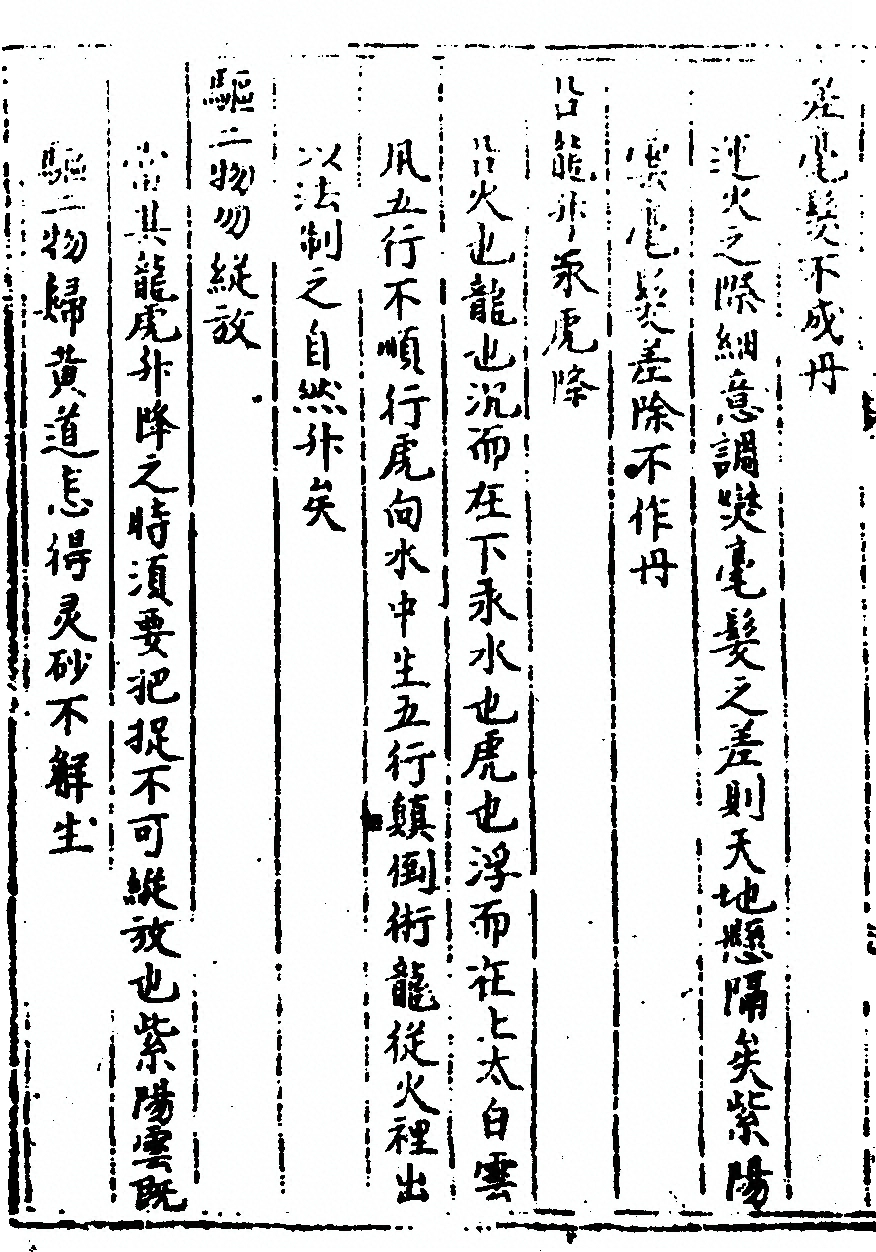 差毫髮不成丹
運火之際細意調燮毫髮之差則天地懸隔矣紫陽
雲毫髮差除不作丹
鉛龍升汞虎降
鉛火也龍也沉而在下汞水也虎也浮而在上太白雲
凡五行不順行虎向水中生五行顛倒術龍從火裡出
以法制之自然升矣
驅二物勿縱放
當其龍虎升降之時須要把捉不可縱放也紫陽雲既
驅二物歸黃道怎得灵砂不解生